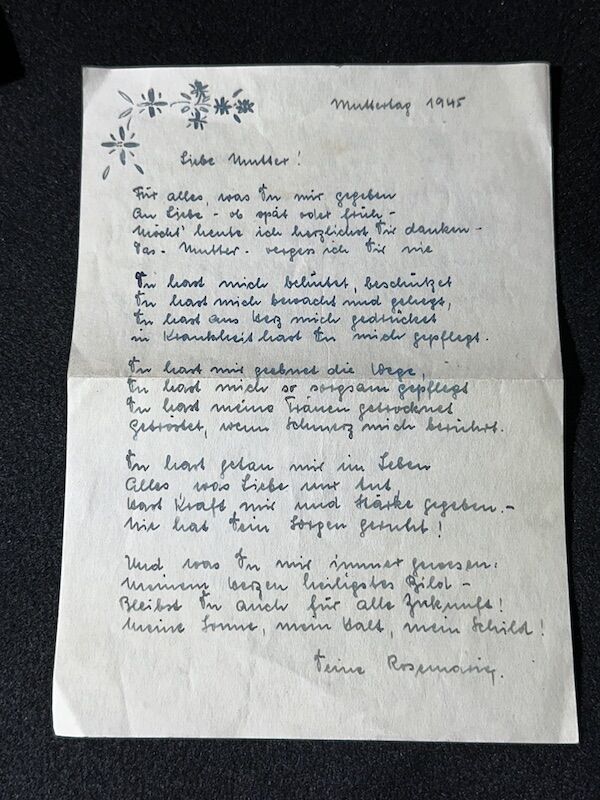 Muttertag 1945
Liebe Mutter!
Für alles, was Du mir gegeben
An Liebe - ob spät oder früh -
Möcht' heute ich herzlichst Dir danken -
Das - Mutter - vergess ich Dir nie
Du hast mich behütet, beschützet
Du hast mich bewacht und gehegt,
Du hast ans Herz mich gedrücket
in Krankheit hast Du mich gepflegt.
Du hast mir geebnet die Wege,
Du hast mich so sorgsam gepflegt
Du hast meine Tränen getrocknet
Getröstet, wenn Schmerz mich berührt.
Du hast getan mir im Leben
Alles was Liebe nur tut
Hast Kraft mir und Stärke gegeben. -
Nie hat Dein Sorgen geruht!
Und was Du mir immer gewesen:
Meinem Herzen heiligstes Bild -
Bleibst Du auch für alle Zukunft!
Meine Sonne, mein Halt, mein Schild!
Deine Rosemarie.